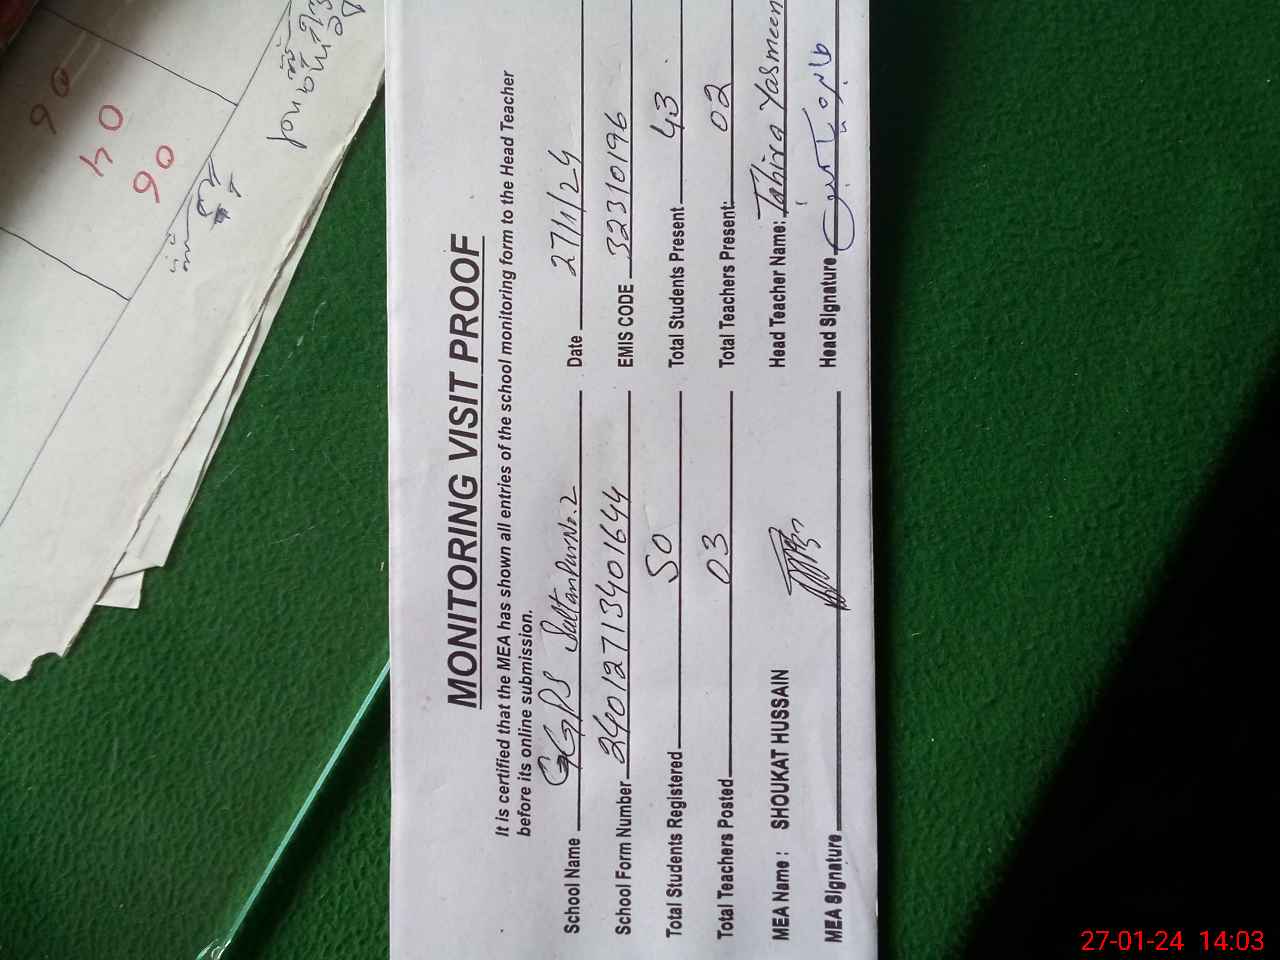 MONITORING VISIT PROOF
It is certified that the MEA has shown all entries of the school monitoring form to the Head Teacher
before its online submission.
School Name GGPS Sultanpur No.2 Date 27/1/24
School Form Number 24012713401644 EMIS CODE 32310196
Total Students Registered 50 Total Students Present 43
Total Teachers Posted 03 Total Teachers Present: 02
MEA Name : SHOUKAT HUSSAIN Head Teacher Name: Tahira Yasmeen
MEA Signature Head Signature
06
40
06
27-01-24 14:03